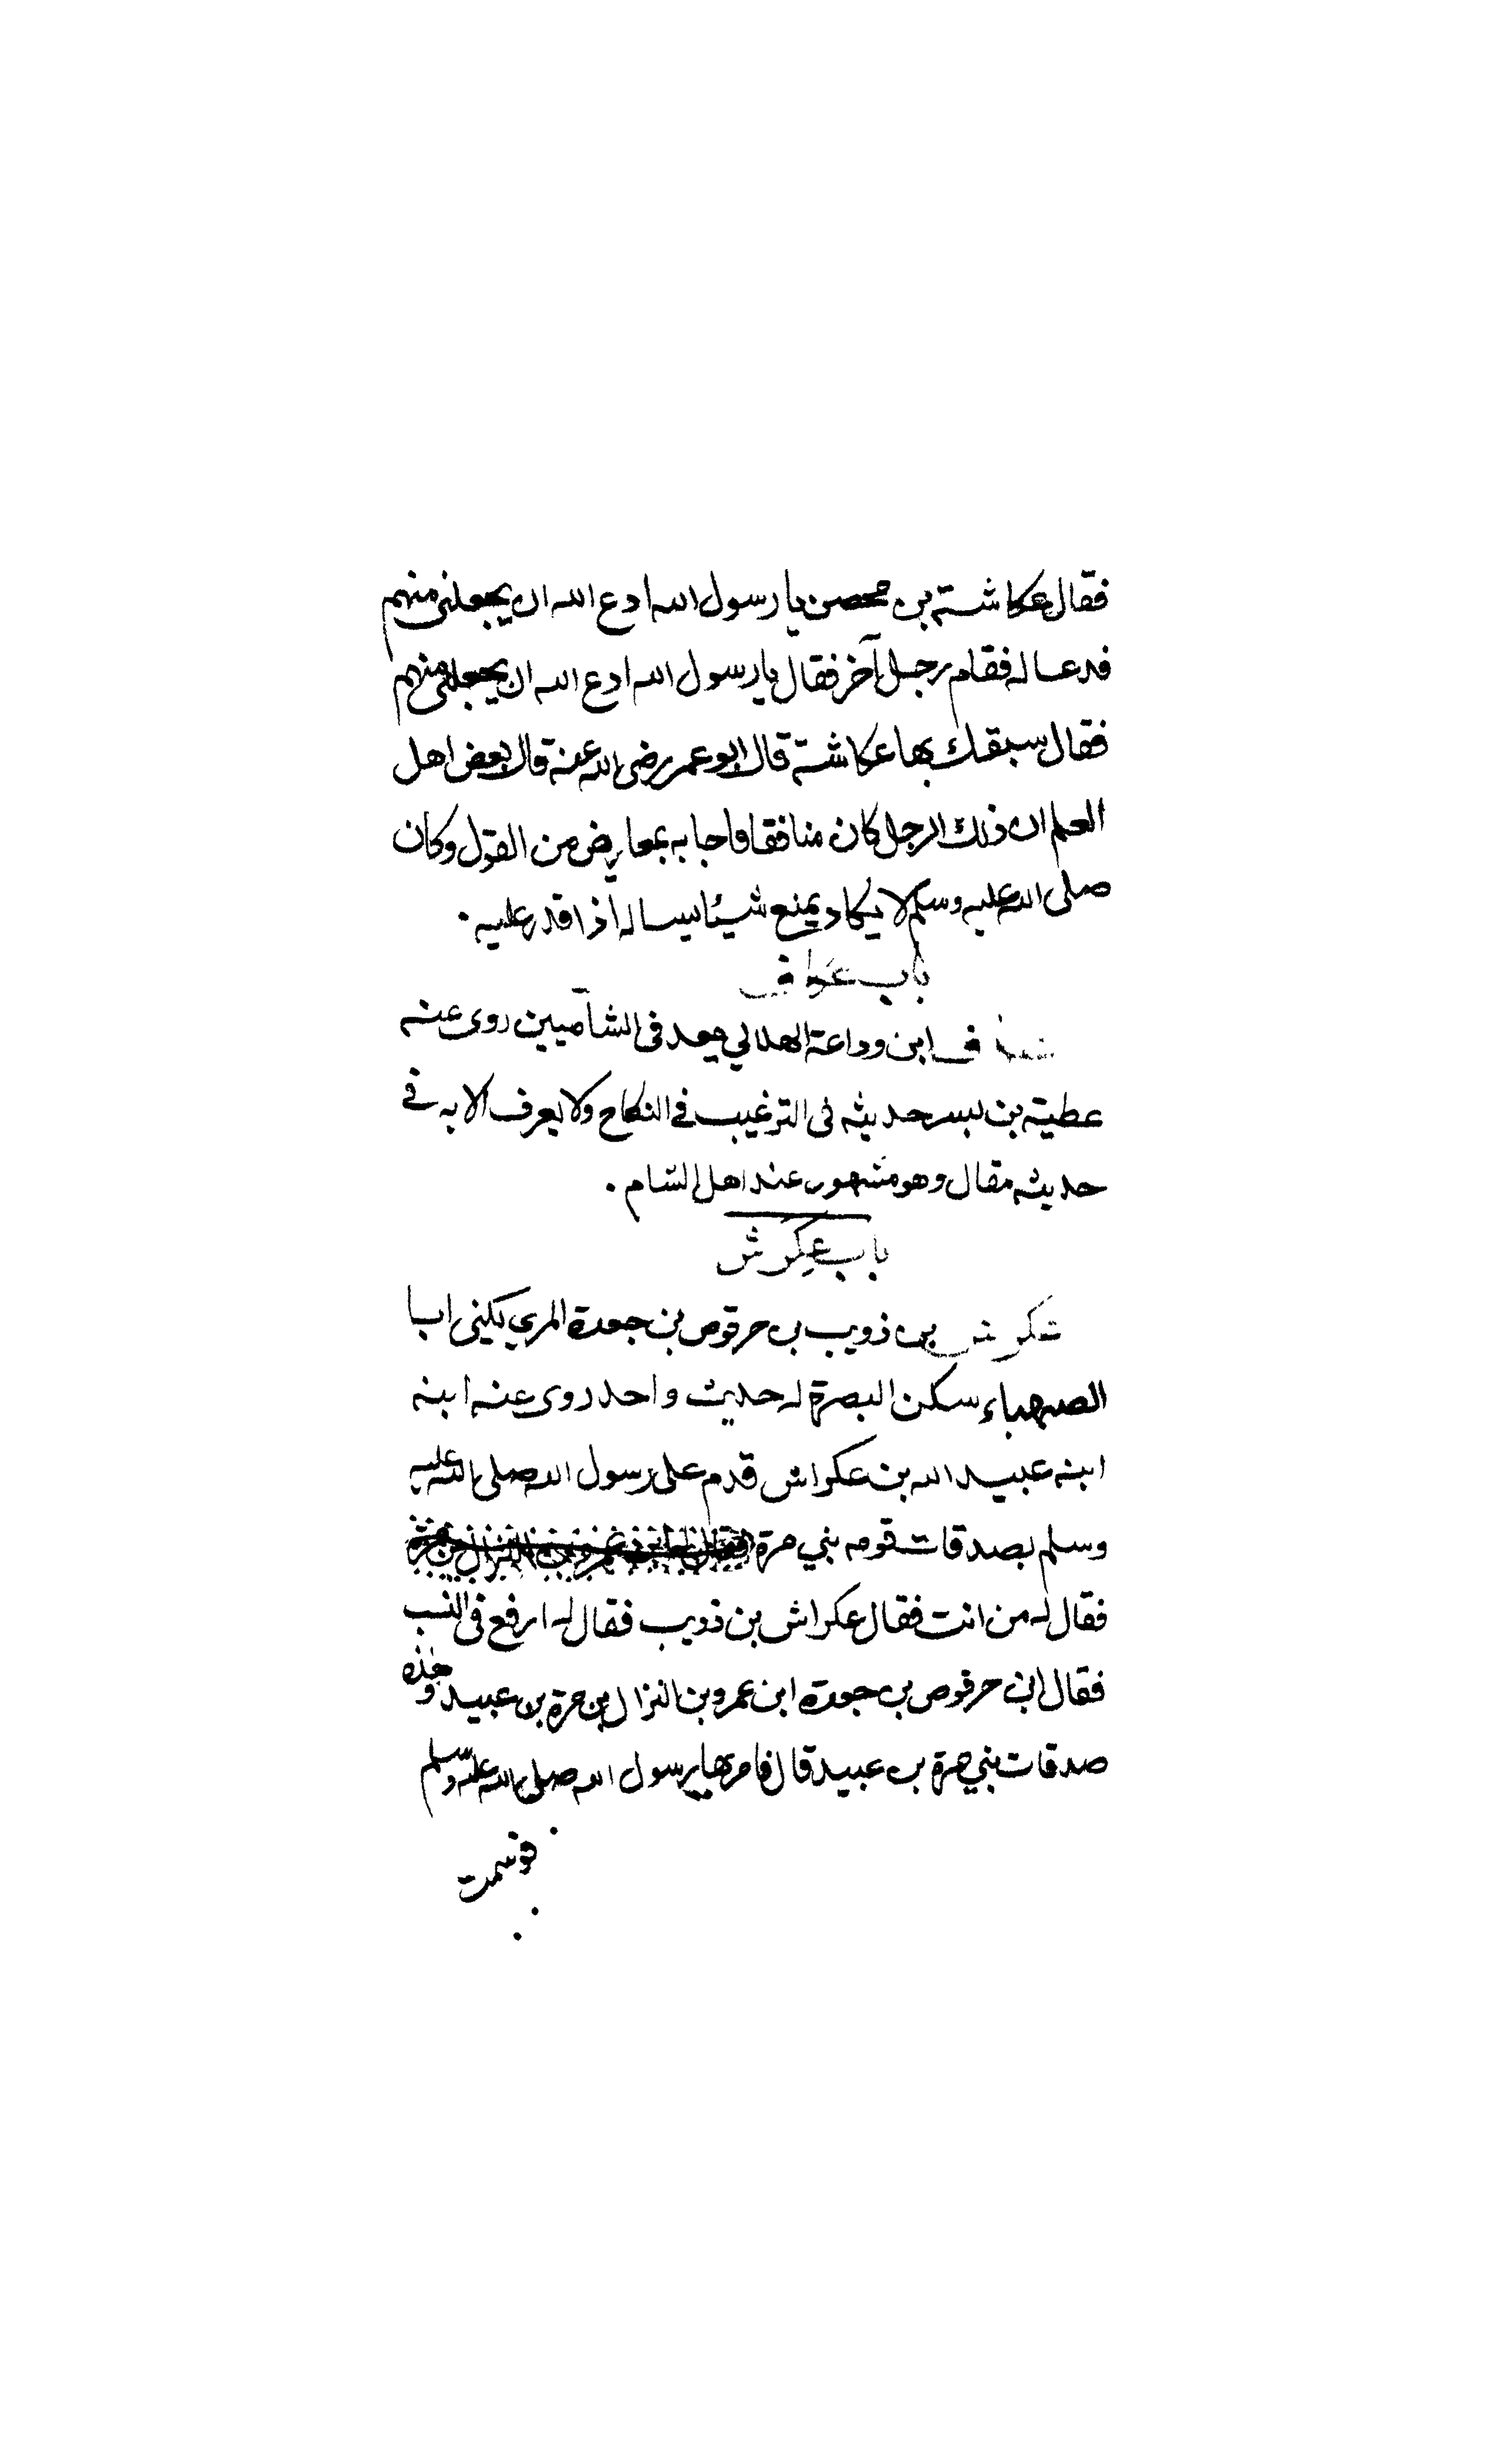 فقال عكاشة بن محصن يا رسول الله ادع الله ان يجعلني منهم
فدعا له فقام رجل آخر فقال يا رسول الله ادع الله ان يجعلني منهم
فقال سبقك بها عكاشة قال ابو عمر رضى الله عنه قال بعض اهل
العلم ان ذلك الرجل كان منافقا فاجابه بمعاريض من القول وكان
صلى الله عليه وسلم لا يكاد يمنع شيئا يساله اذا قدر عليه .
باب عكاف
ابن وداعة الهلالي يعد فى الشآميين روى عنه
عطية بن بسر حديثه فى الترغيب في النكاح ولا يعرف الا به في
حديثه مقال وهو مشهور عند اهل الشام .
باب عكرش
بن ذويب بن حرقوص بن جعدة المري يكنى ابا
الصهباء سكن البصرة له حديث واحد روى عنه ابنه
ابنه عبيد الله بن عكراش قدم على رسول الله صلى الله عليه
وسلم بصدقات قومه بني مرة
فقال له من انت فقال عكراش بن ذويب فقال له ارفع فى النسب
فقال ابن حرقوص بن جعدة ابن عمرو بن النزال بن مرة بن عبيد وهذه
صدقات بني مرة بن عبيد قال فامر بها رسول الله صلى الله عليه وسلم
فوسمت